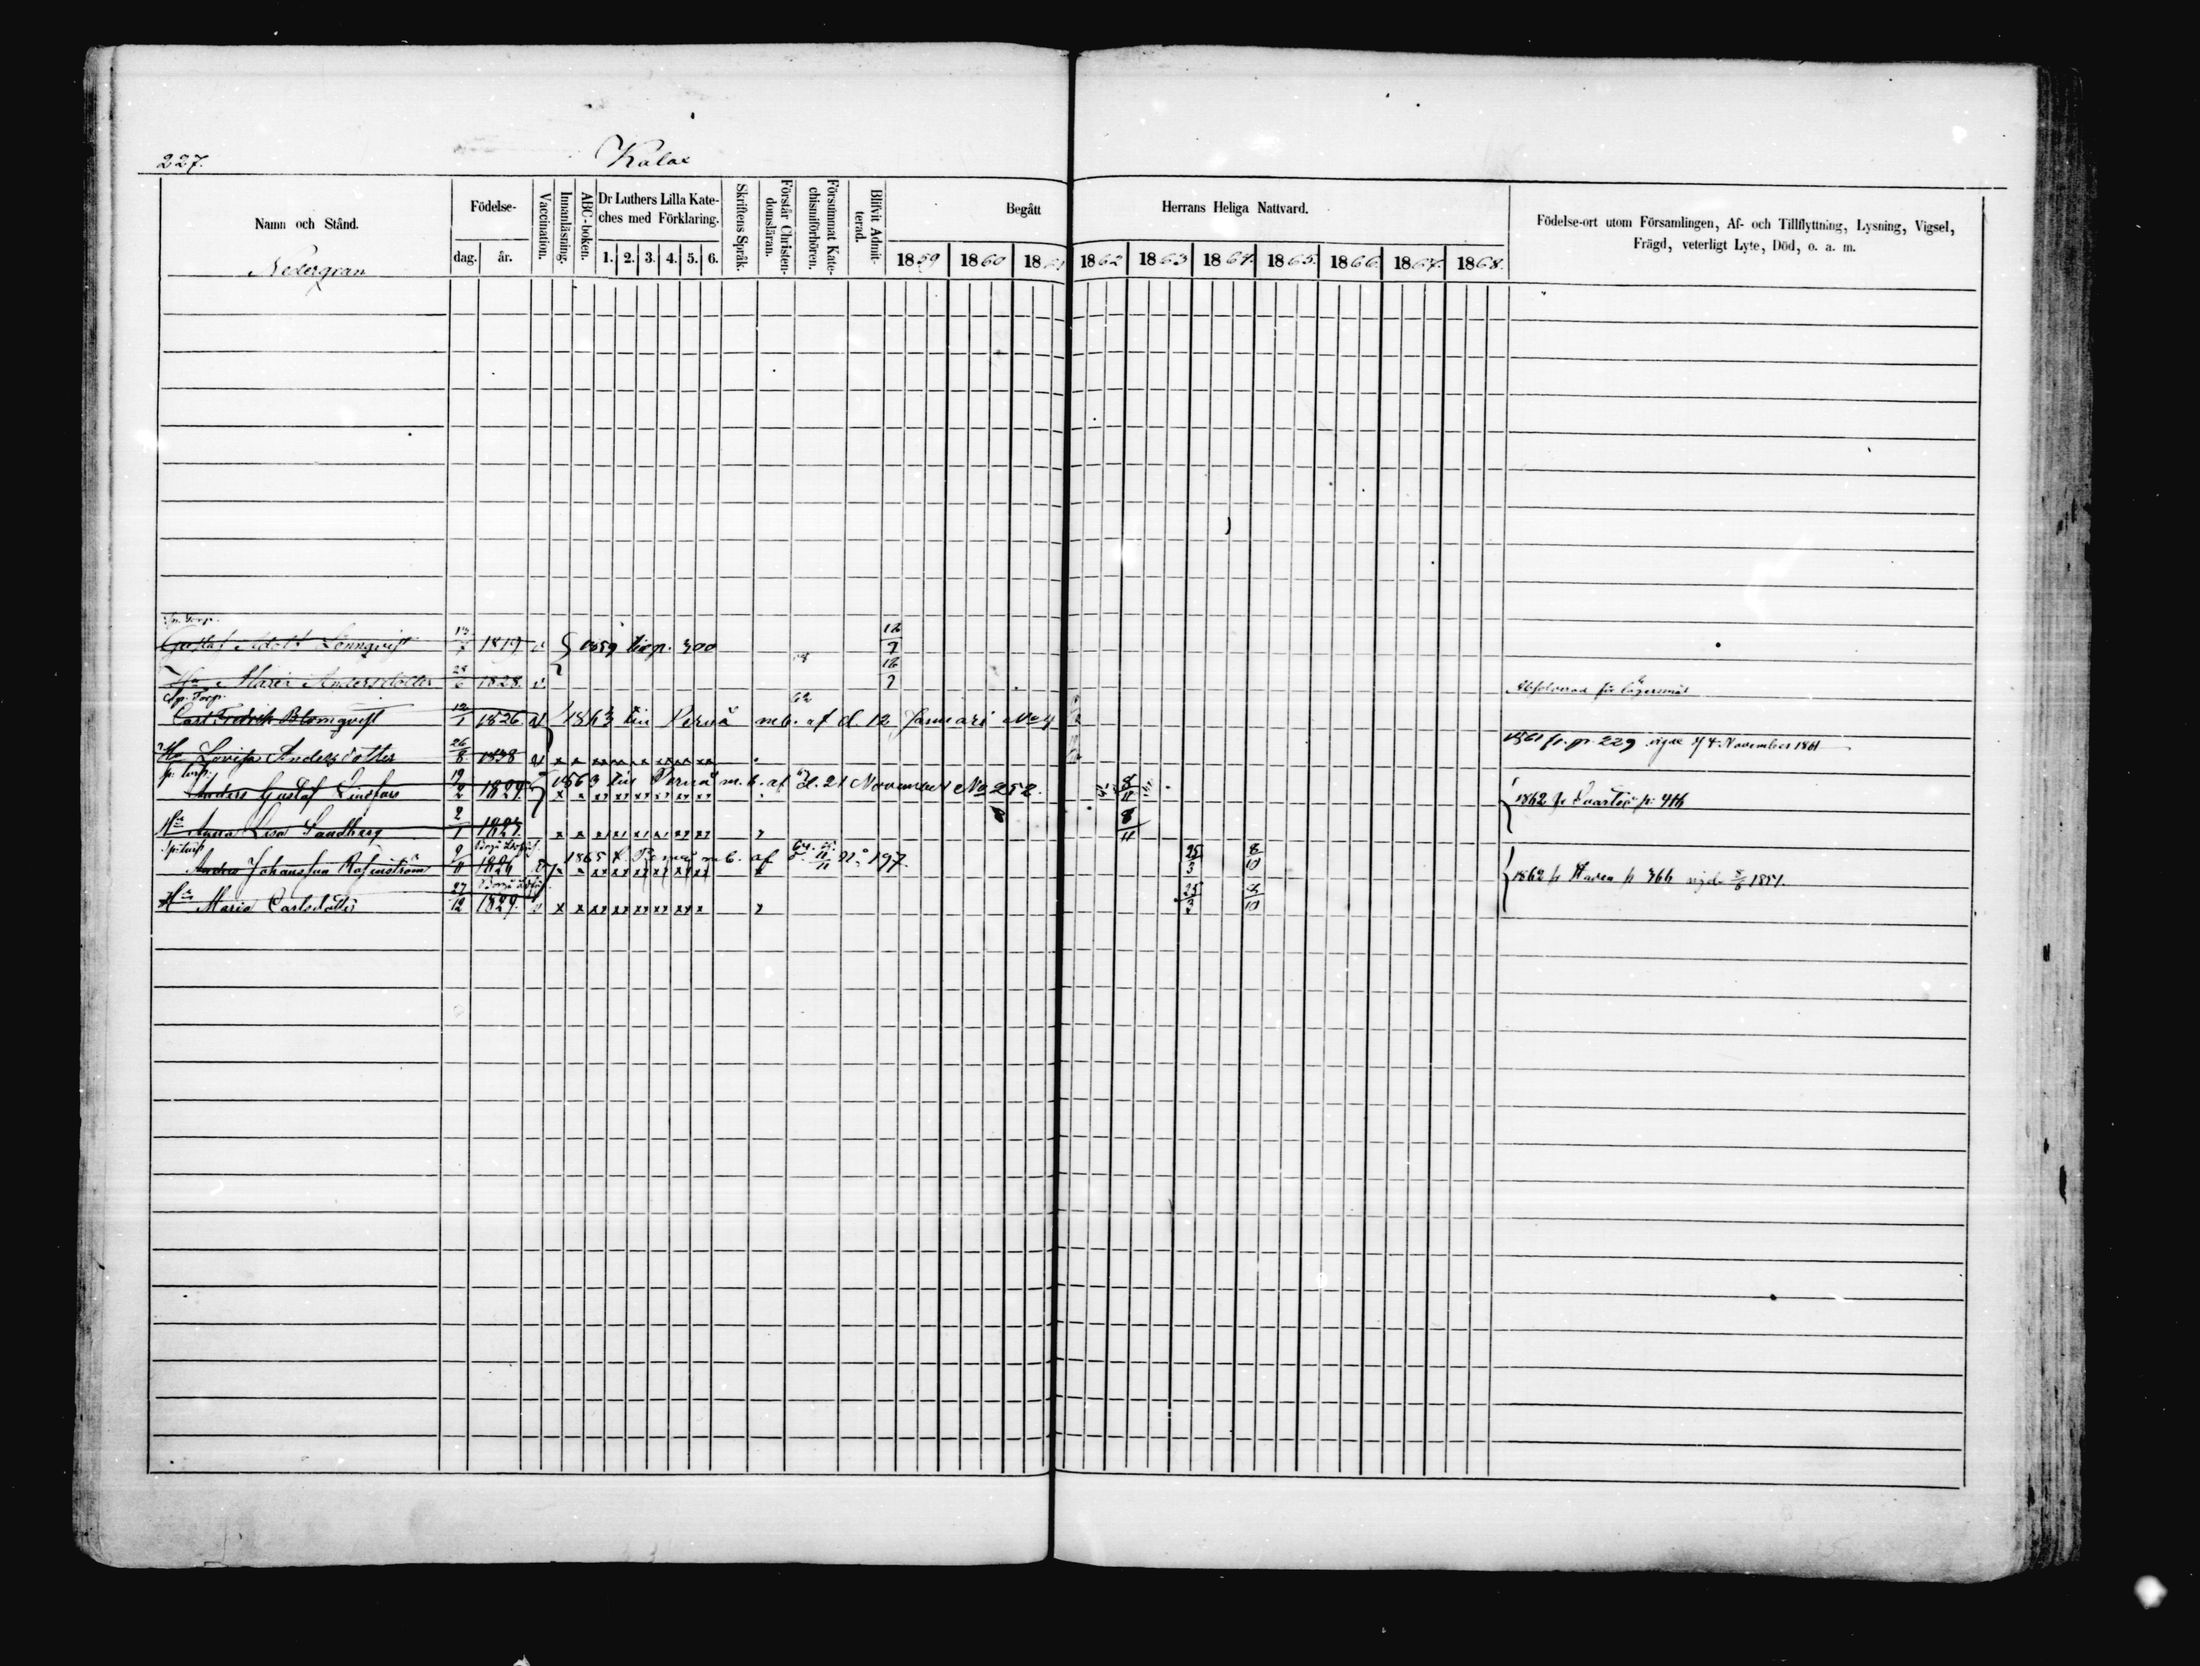 227.
Namn och Stånd.
Födelse-
dag.
år.
Vaccination.
Innanläsning.
ABC-boken.
Dr Luthers Lilla Kate-
ches med Förklaring.
1. 2. 3. 4. 5. 6.
Skriftens Språk.
Förstår Christen-
domsläran.
Försummat Kate-
chismiförhören.
Blifvit Admit-
terad.
Begått Herrans Heliga Nattvard.
1859 1860 1861 1862 1863 1864. 1865. 1866. 1867. 1868.
Födelse-ort utom Församlingen, Af- och Tillflyttning, Lysning, Vigsel,
Frägd, veterligt Lyte, Död, o. a. m.
Nedergran
Sp. Torp.
Gustaf Adolf Lönnqvist 13/7 1819. v 1859 till p. 300 12/7
Hu Maria Andersdotter 28/6 1828. v 12/7 Absolverad för lägersmål
Sp. Torp.
Carl Fredrik Blomqvist 12/1 1826 v 1863 till Pernå m.b. af d. 12 Januari No 4
Hu Lovisa Andersdotter 26/8 1838 v 1861 fr. p. 229 vigde d 4 November 1861
sp. torp.
Anders Gustaf Lindfors 19/2 1829. 1863 till Pernå m.b. af d. 21 November No 252. 8/11 1862 fr p. 416
Hu Anna Lisa Sandberg 2/1 1827. 8 8/11
sp. torp
Anders Johansson Rosinström 9/11 1826 v 1865 t. Pernå m.b. af d. 11/11 No 197. 25/3 8/10 1862 fr p 366 vigde 5/8 1851.
Hu Maria Carlsdotter 27/12 1829. v 25/3 8/10